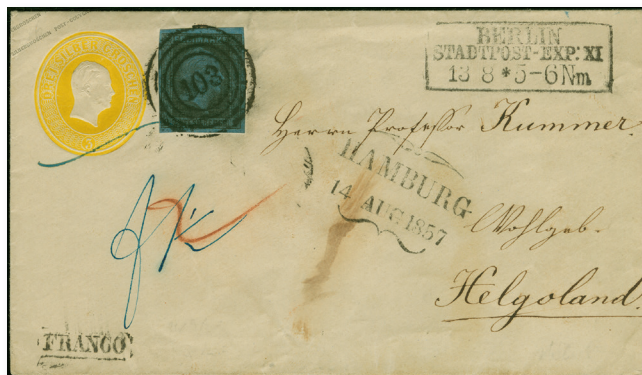 BERLIN
STADTPOST-EXP: XI
13 8 * 5-6 Nm
103
Herrn Professor Kummer.
HAMBURG
14 AUG 1857
Wohlgeb.
Helgoland.
FRANCO